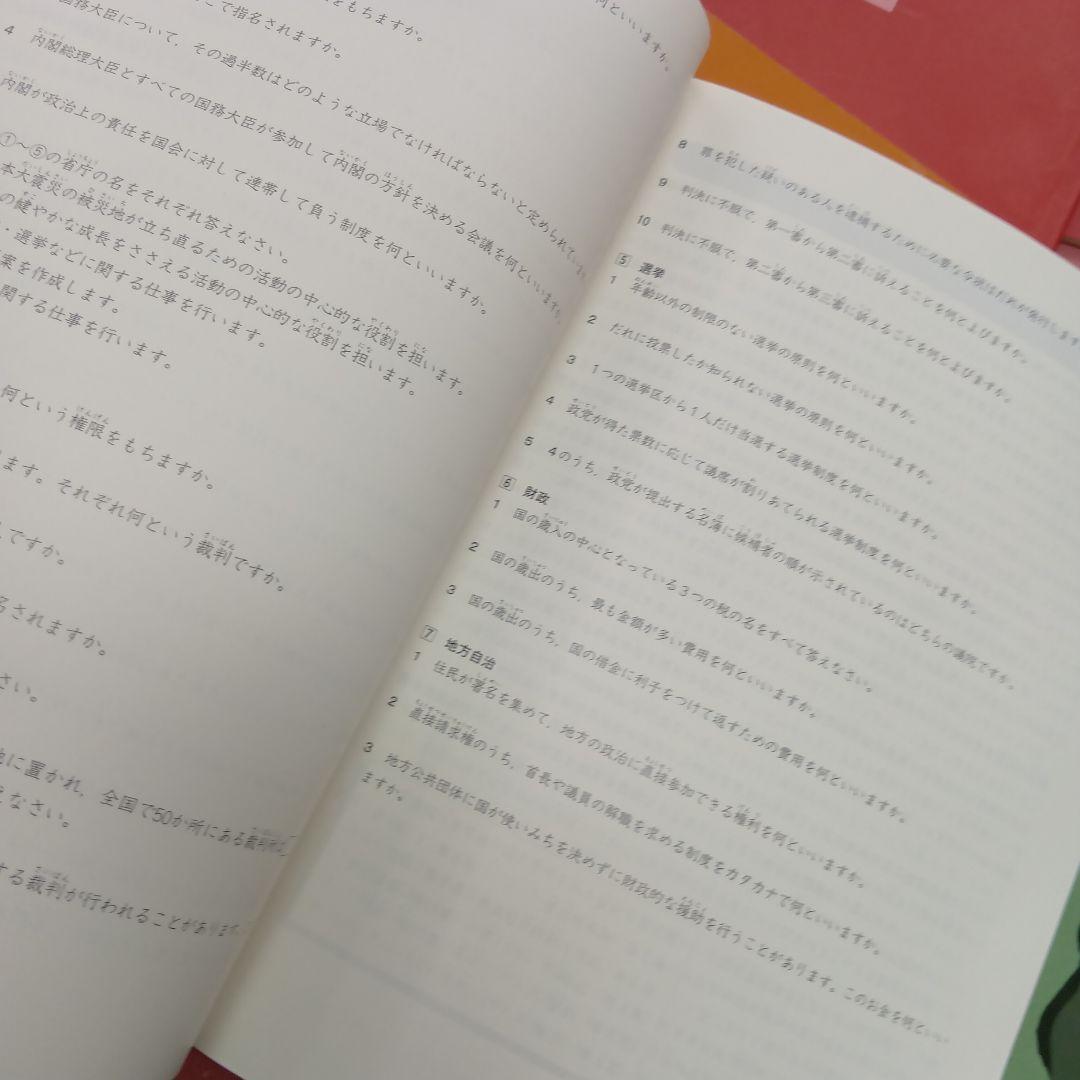 何といいますか。
をもちますか。
こで指名されますか。
国務大臣について，その過半数はどのような立場でなければならないと定められてい
4 内閣総理大臣とすべての国務大臣が参加して内閣の方針を決める会議を何といいます
内閣が政治上の責任を国会に対して連帯して負う制度を何といいますか。
①～⑤の省庁の名をそれぞれ答えなさい。
本大震災の被災地が立ち直るための活動の中心的な役割を担います。
の健やかな成長をささえる活動の中心的な役割を担います。
・選挙などに関する仕事を行います。
案を作成します。
関する仕事を行います。
何という権限をもちますか。
ます。それぞれ何という裁判ですか。
ですか。
名されますか。
さい。
に置かれ，全国で50か所にある裁判所は，
なさい。
する裁判が行われることがあります。
8 罪を犯した疑いのある人を逮捕するために必要な令状はだれが発行します
9 判決に不服で，第一審から第二審に訴えることを何とよびますか。
10 判決に不服で，第二審から第三審に訴えることを何とよびますか。
5 選挙
1 年齢以外の制限のない選挙の原則を何といいますか。
2 だれに投票したか知られない選挙の原則を何といいますか。
3 1つの選挙区から1人だけ当選する選挙制度を何といいますか。
4 政党が得た票数に応じて議席が割りあてられる選挙制度を何といいますか。
5 4のうち，政党が提出する名簿に候補者の順が示されているのはどちらの議院ですか。
6 財政
1 国の歳入の中心となっている3つの税の名をすべて答えなさい。
2 国の歳出のうち，最も金額が多い費用を何といいますか。
3 国の歳出のうち，国の借金に利子をつけて返すための費用を何といいますか。
7 地方自治
1 住民が署名を集めて，地方の政治に直接参加できる権利を何といいますか。
2 直接請求権のうち，首長や議員の解職を求める制度をカタカナで何といいますか。
3 地方公共団体に国が使いみちを決めずに財政的な援助を行うことがあります。このお金を何といい
ますか。